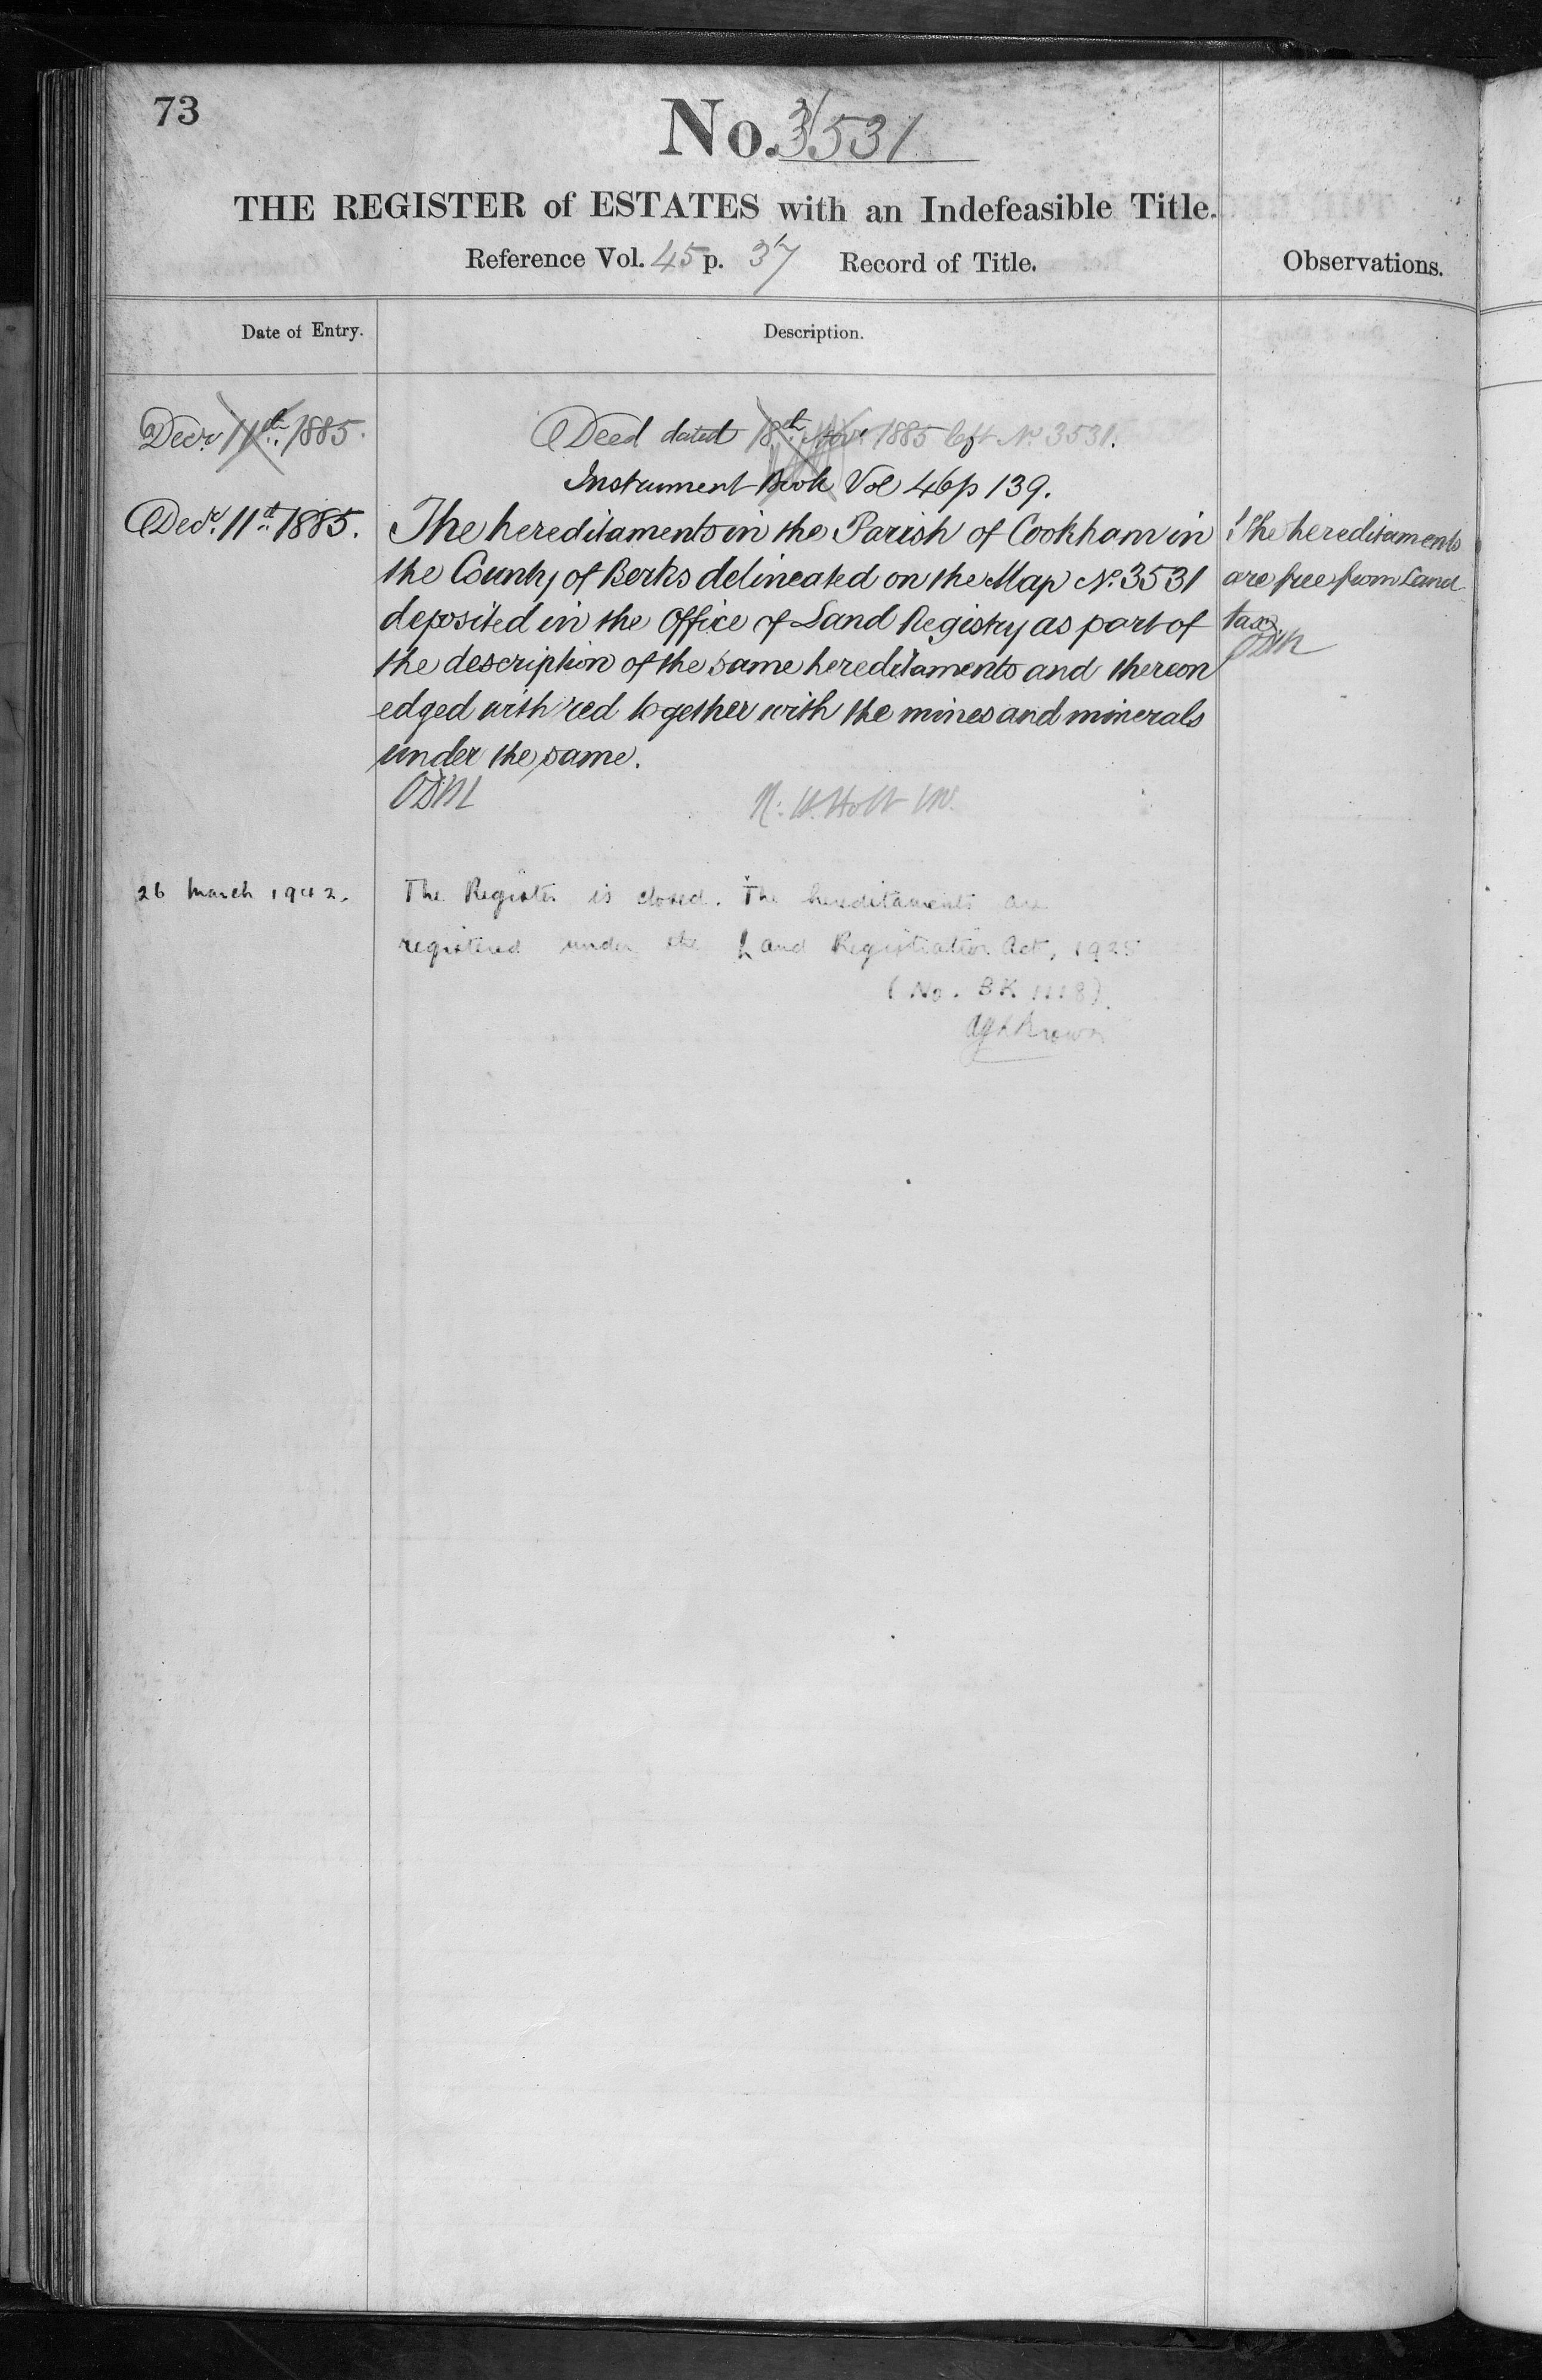 73
No. 3531
THE REGISTER of ESTATES with an Indefeasible Title.
Reference Vol. 45 p. 37 Record of Title.
Observations.
Date of Entry.
Description.
Decr. 11th 1885.
Deed dated 18th Novr. 1885 left No. 3531.
Instrument Book Vol 46 p 139.
Decr. 11th 1885.
The hereditaments in the Parish of Cookham in
the County of Berks delineated on the Map No. 3531
deposited in the Office of Land Registry as part of
the description of the same hereditaments and thereon
edged with red together with the mines and minerals
under the same.
The hereditaments
are free from Land
tax.
Holt
26 March 1942.
The Register is closed. The hereditaments are
registered under the Land Registration Act, 1925
(No. BK 1118).
Brown